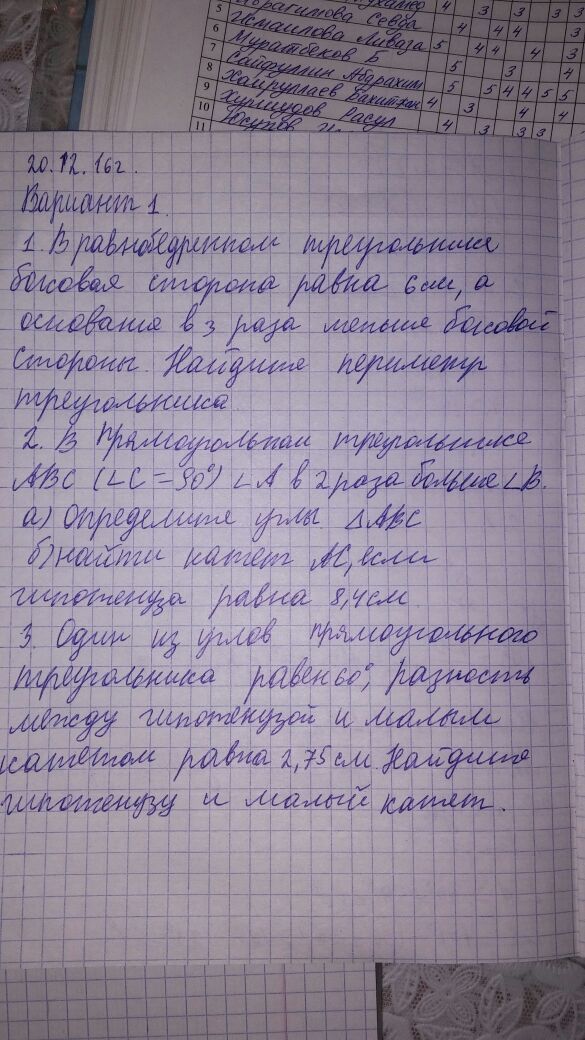 5 Ибрагимова Севда 4 4 4 3
6 Исмаилова Ливаза 5 4 4 4 3
7 Муратбеков Б 5 3 4
8 Сайфуллин Абдрахим 5 5 4 4 5 5
9 Хайруллаев Бахитжан 4 3 4 4
10 Хуршудов Расул 4 3 3 3
11 Юсупов
20.12.16г.
Вариант 1.
1. В равнобедренном треугольнике
боковая сторона равна 6 см, а
основание в 3 раза меньше боковой
стороны. Найдите периметр
треугольника
2. В прямоугольном треугольнике
ABC (∠C = 90°) ∠A в 2 раза больше ∠B.
а) Определите углы ΔABC
б) найти катет AC, если
гипотенуза равна 8,4 см
3. Один из углов прямоугольного
треугольника равен 60°, разность
между гипотенузой и малым
катетом равна 2,75 см. Найдите
гипотенузу и малый катет.